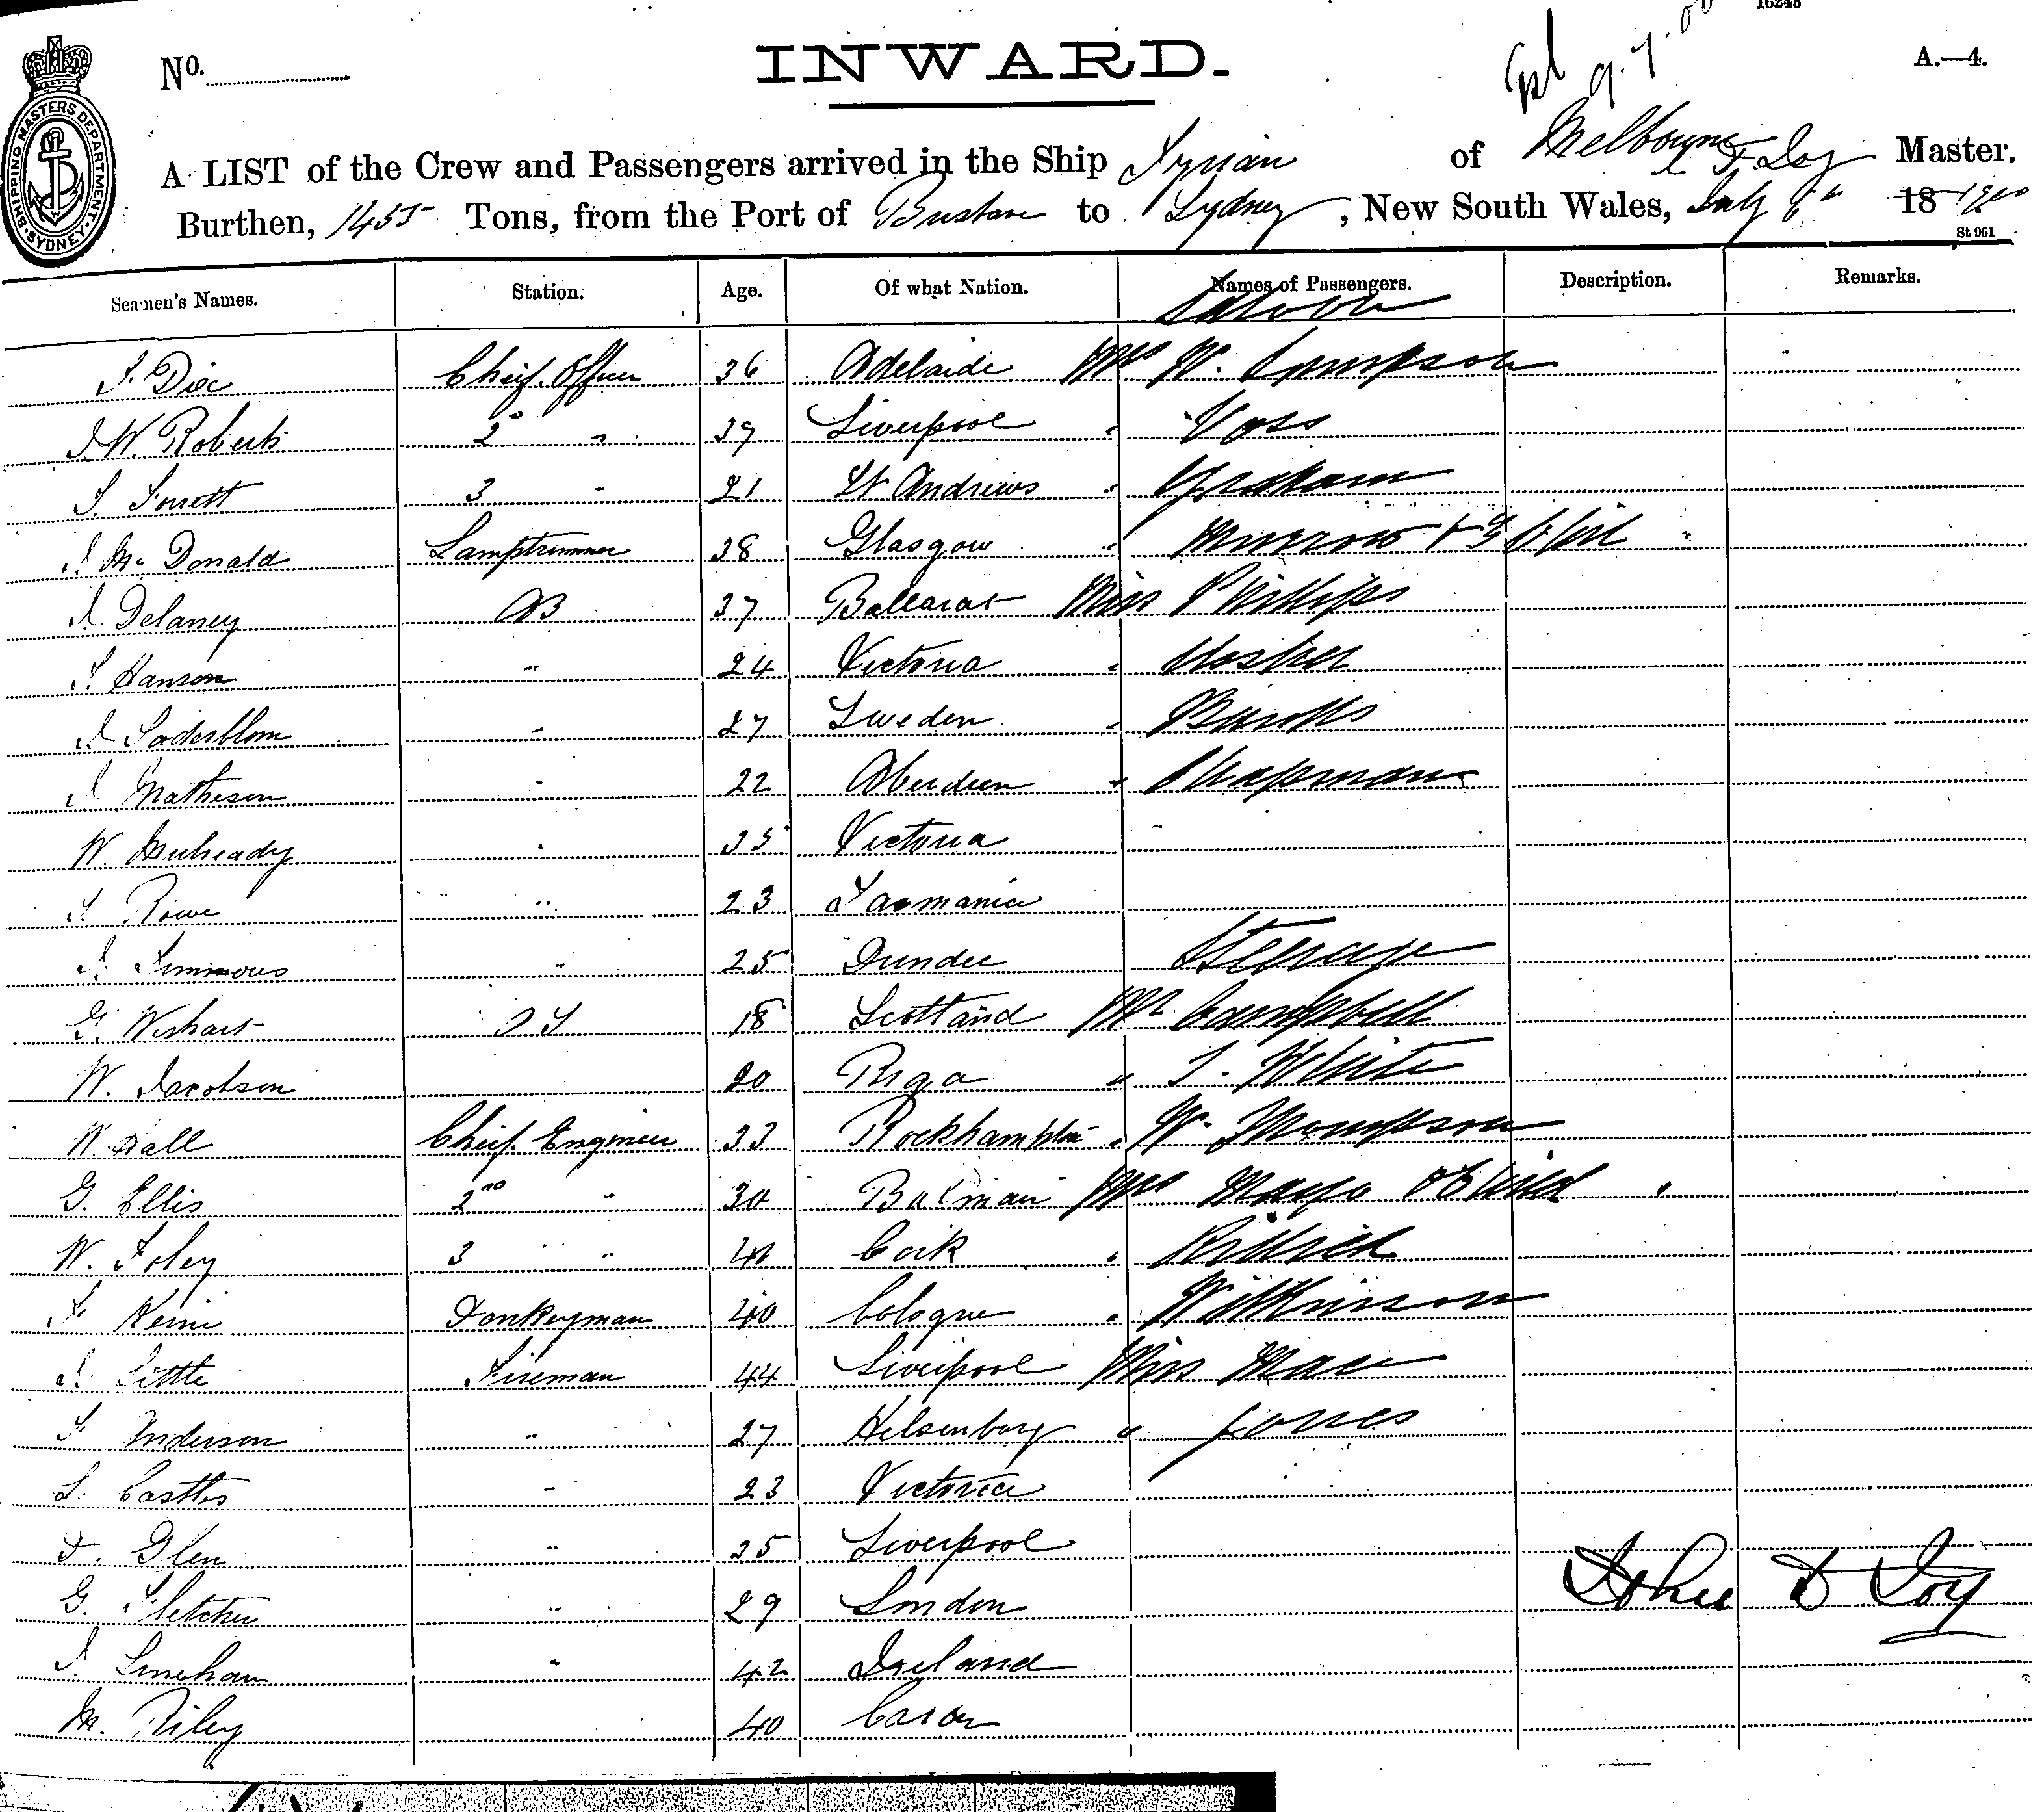 16248
No. INWARD. 9.7.00 A.—4.
SHIPPING MASTERS DEPARTMENT. SYDNEY.
A LIST of the Crew and Passengers arrived in the Ship Tyrian of Melbourne Master.
Burthen, 1455 Tons, from the Port of Brisbane to Sydney, New South Wales, July 8th 18 1900
St 961
Seamen's Names. Station. Age. Of what Nation. Names of Passengers. Description. Remarks.
Saloon
J. Dix Chief Officer 36 Adelaide Mrs W. Sampson
J. W. Roberts 2 " 39 Liverpool " Voss
J. 3 " 21 St Andrews " Graham
J. McDonald Lamptrimmer 38 Glasgow " Munrow + 3 Chil "
J. Delaney AB 37 Ballarat Miss Phillips
J. Hanson " 24 Victoria "
J. Soderblom " 27 Sweden "
J. Matheson " 22 Aberdeen " Chapman
W. " 35 Victoria
J. Rowe " 23 Tasmania
J. Simmons " 25 Dundee Steerage
G. Wishart OS 18 Scotland Mr Campbell
W. Jacobson 20 Riga " J. White
W. Hall Chief Engineer 33 Rockhampton " W. Thompson
G. Ellis 2nd " 30 Balmain Mrs Mayo + Child "
W. Foley 3 " " 40 Cork "
Donkeyman 40 Cologne " Wilkinson
J. Little Fireman 44 Liverpool Miss Mace
J. Anderson " 27 Helsenborg " Jones
L. Castles " 23 Victoria
F. Glen " 25 Liverpool
G. Fletcher " 29 London John D Joy
J. Linehan " 42 Ireland
M. Riley 40 Cavan